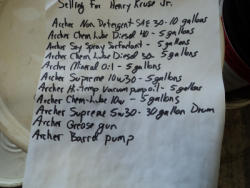 Selling For Henry Kruse Jr.
Archer Non Detergent SAE 30 - 10 gallons
Archer Chem Lube Diesel 40 - 5 gallons
Archer Soy Spray Surfactant - 5 gallons
Archer Chem Lube Diesel 30 - 5 gallons
Archer Mineral Oil - 5 gallons
Archer Supreme 10w30 - 5 gallons
Archer Hi-temp Vacuum pump oil - 5 gallons
Archer Chem-Lube 10w - 5 gallons
Archer Supreme 5w30 - 30 gallon Drum
Archer Grease gun
Archer Barrel pump